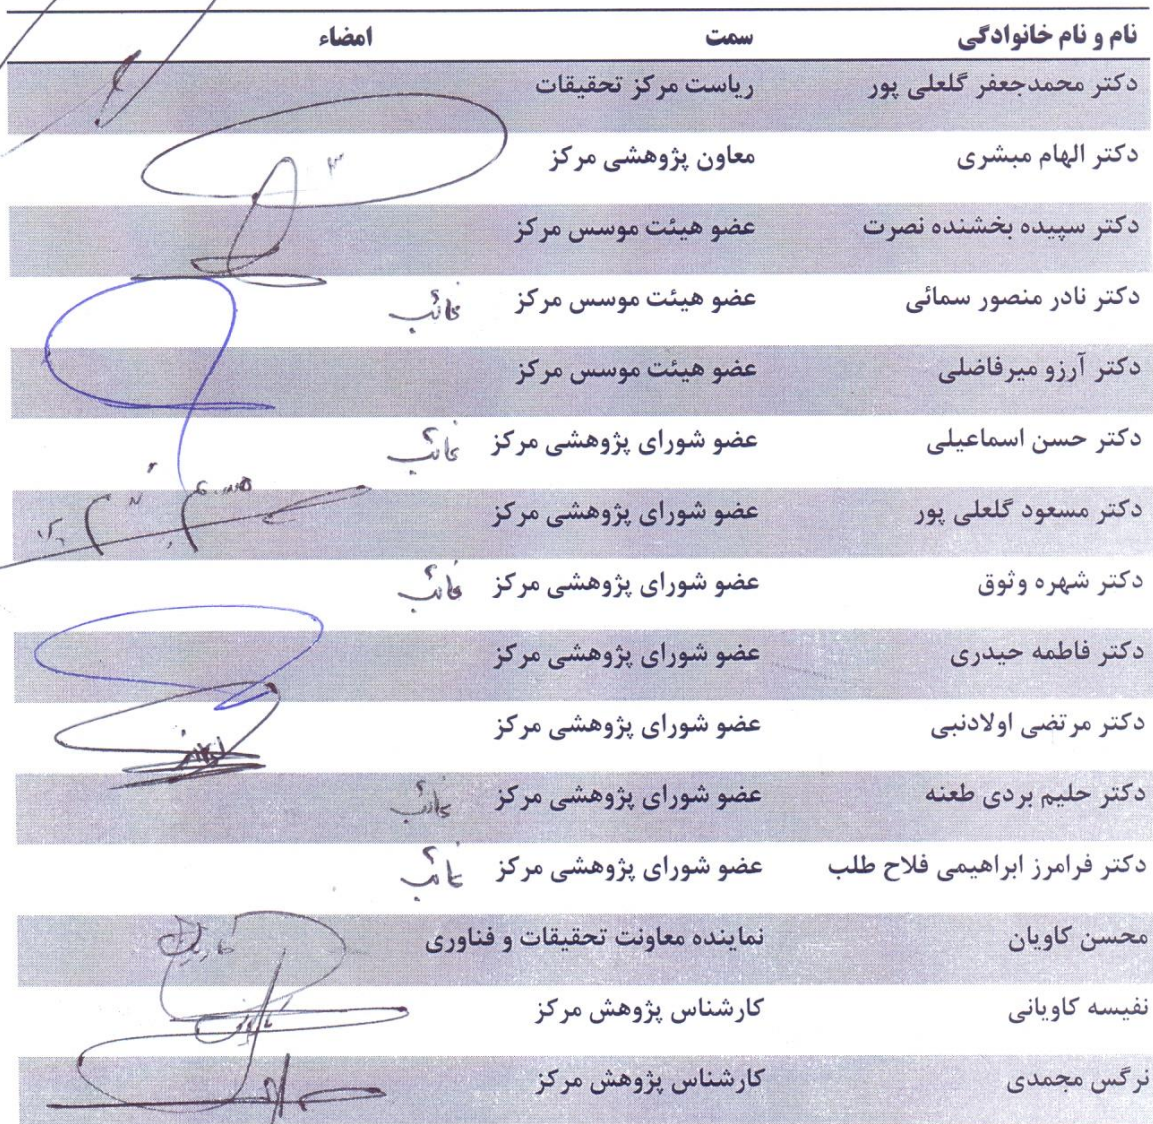 نام و نام خانوادگی سمت امضاء
دکتر محمدجعفر گلعلی پور ریاست مرکز تحقیقات
دکتر الهام مبشری معاون پژوهشی مرکز
دکتر سپیده بخشنده نصرت عضو هیئت موسس مرکز
دکتر نادر منصور سمائی عضو هیئت موسس مرکز غائب
دکتر آرزو میرفاضلی عضو هیئت موسس مرکز
دکتر حسن اسماعیلی عضو شورای پژوهشی مرکز غائب
دکتر مسعود گلعلی پور عضو شورای پژوهشی مرکز
دکتر شهره وثوق عضو شورای پژوهشی مرکز غائب
دکتر فاطمه حیدری عضو شورای پژوهشی مرکز
دکتر مرتضی اولادنبی عضو شورای پژوهشی مرکز
دکتر حلیم بردی طعنه عضو شورای پژوهشی مرکز غائب
دکتر فرامرز ابراهیمی فلاح طلب عضو شورای پژوهشی مرکز غائب
محسن کاویان نماینده معاونت تحقیقات و فناوری
نفیسه کاویانی کارشناس پژوهش مرکز
نرگس محمدی کارشناس پژوهش مرکز